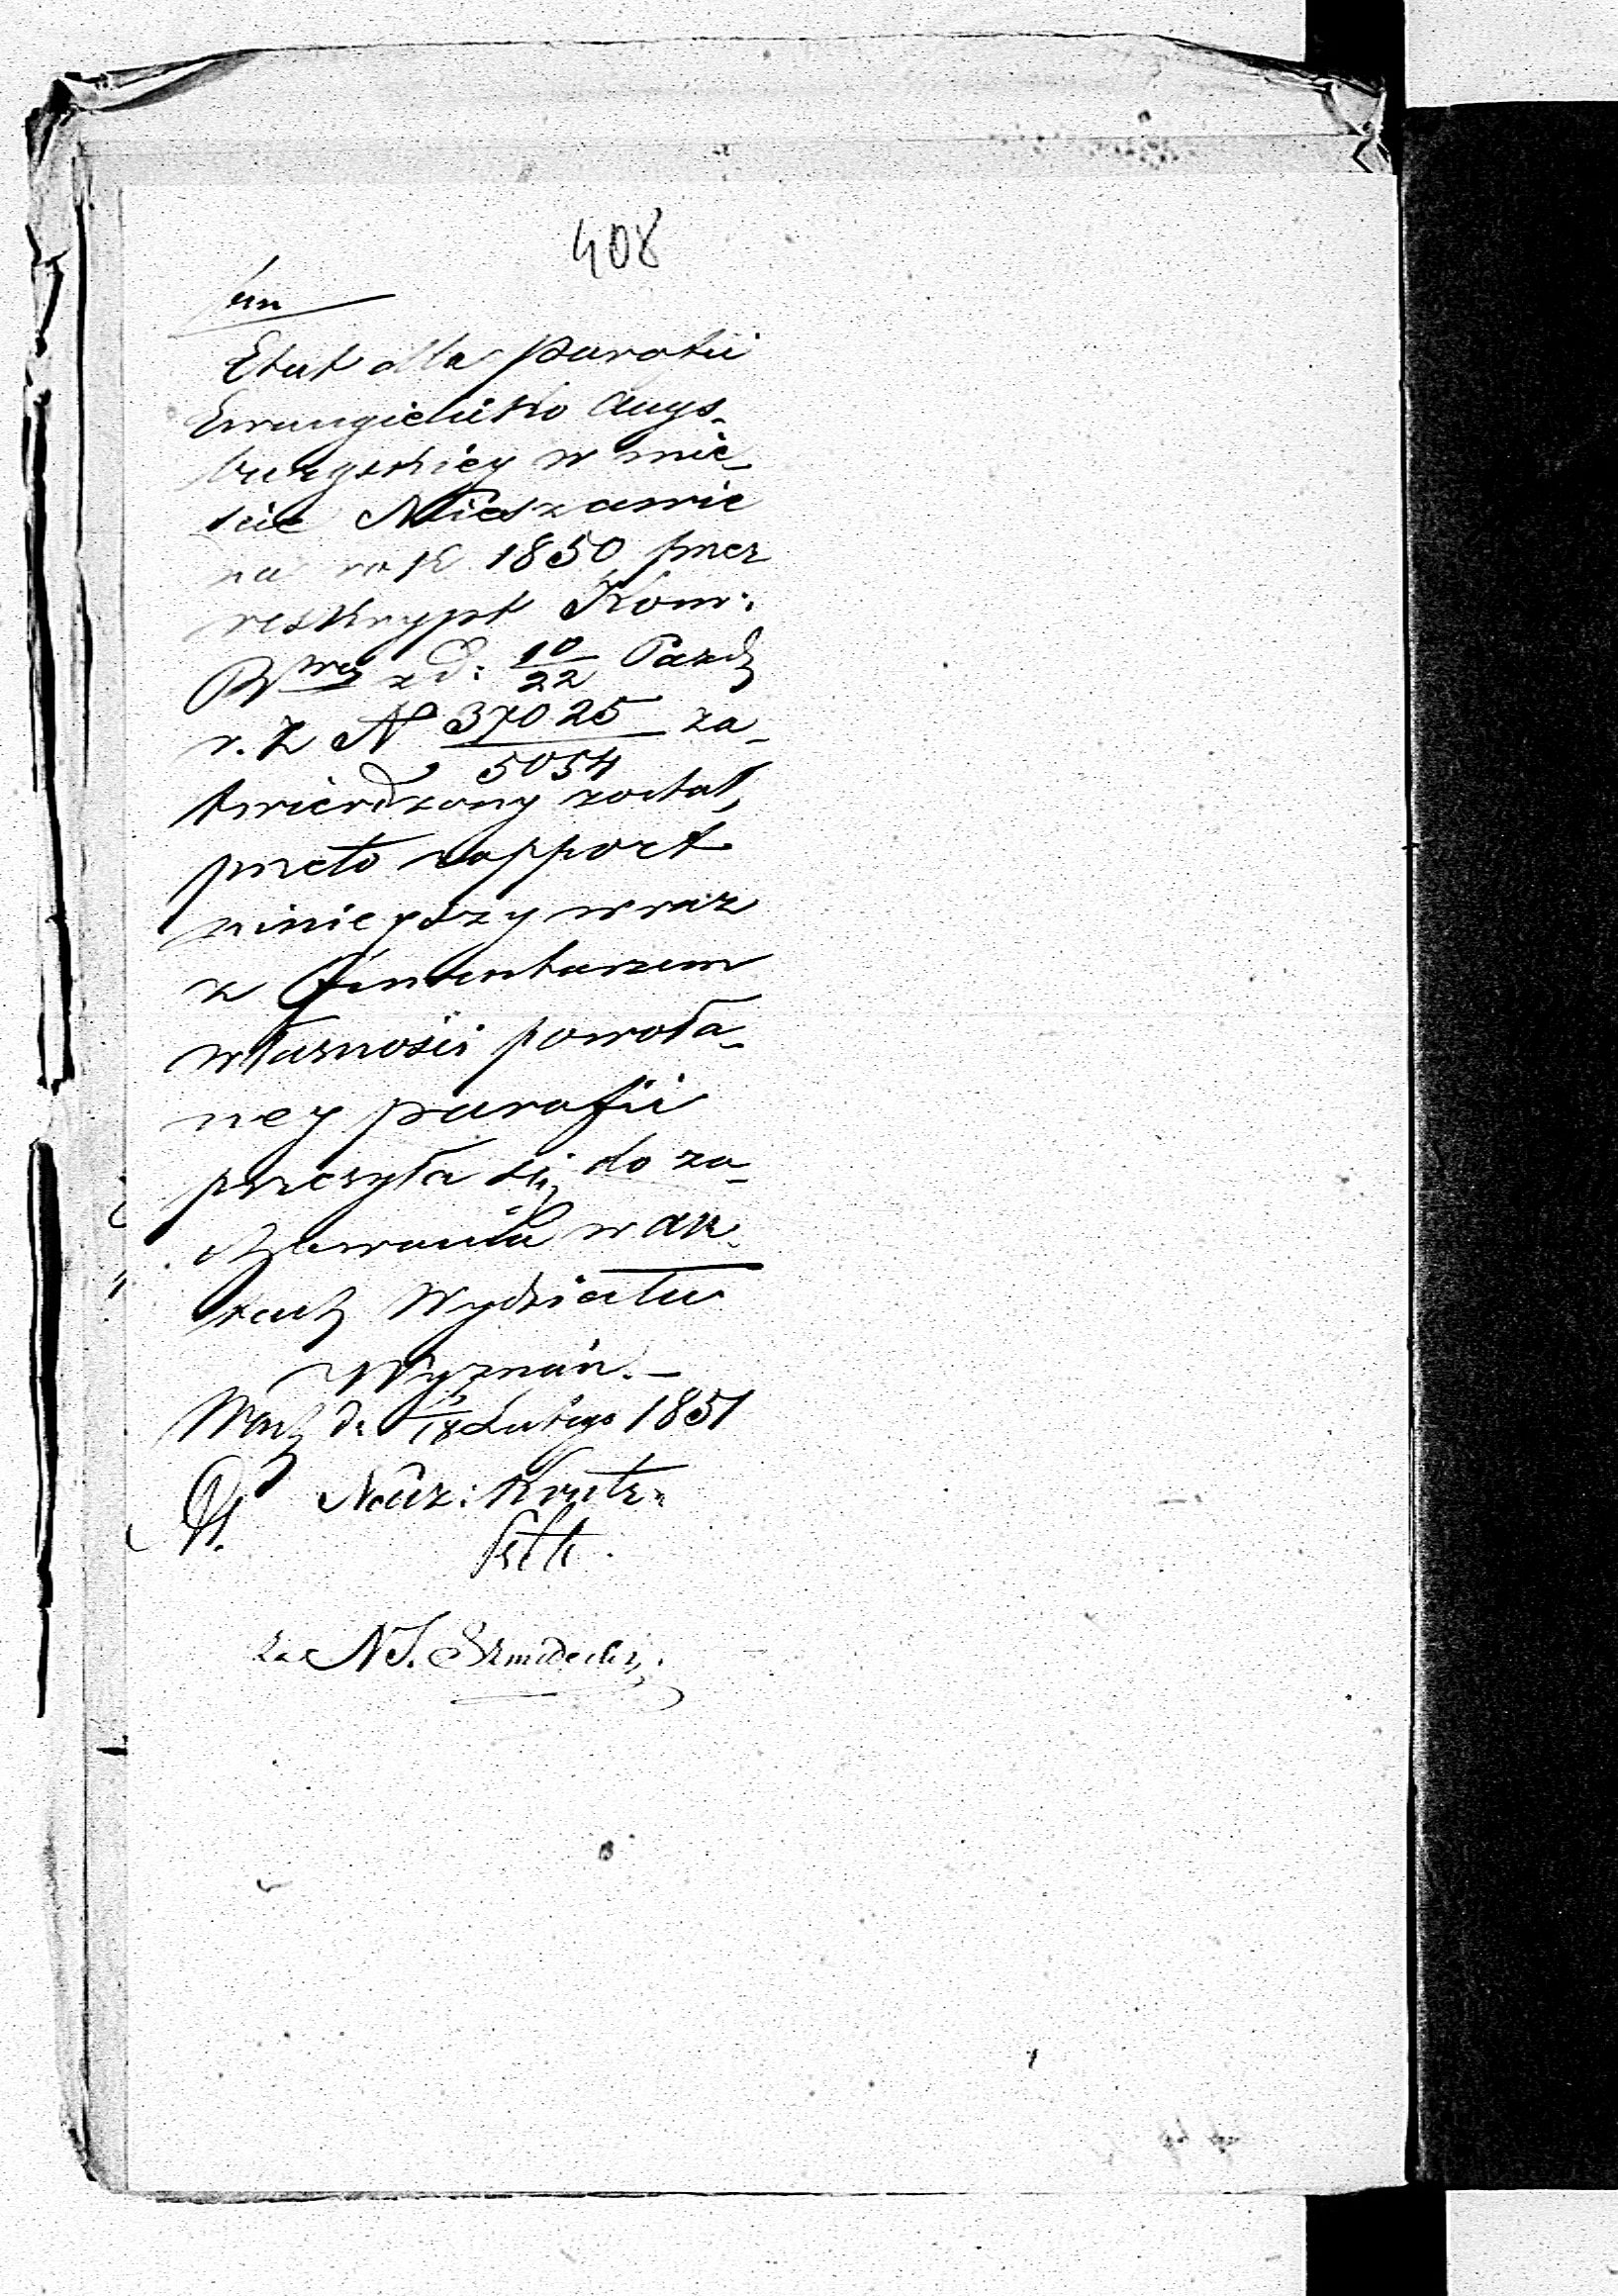 408
Etat dla parafii
Ewangielicko Augs-
burgskiey w mie-
scie Nieszawie
na rok 1850 przez
reskrypt Kom:
z d: 10/22 Paźdz
r. z N 37025/5054 za-
twierdzony został,
przeto rapport
ninieyszy wraz
z Inwentarzem
własności powoła-
ney parafii
przesyła się do za-
chowania w ak-
tach Wydziału
Wyznań.-
Warsz d. /18 Lutego 1851
Nacz: Kontr:
za N S.